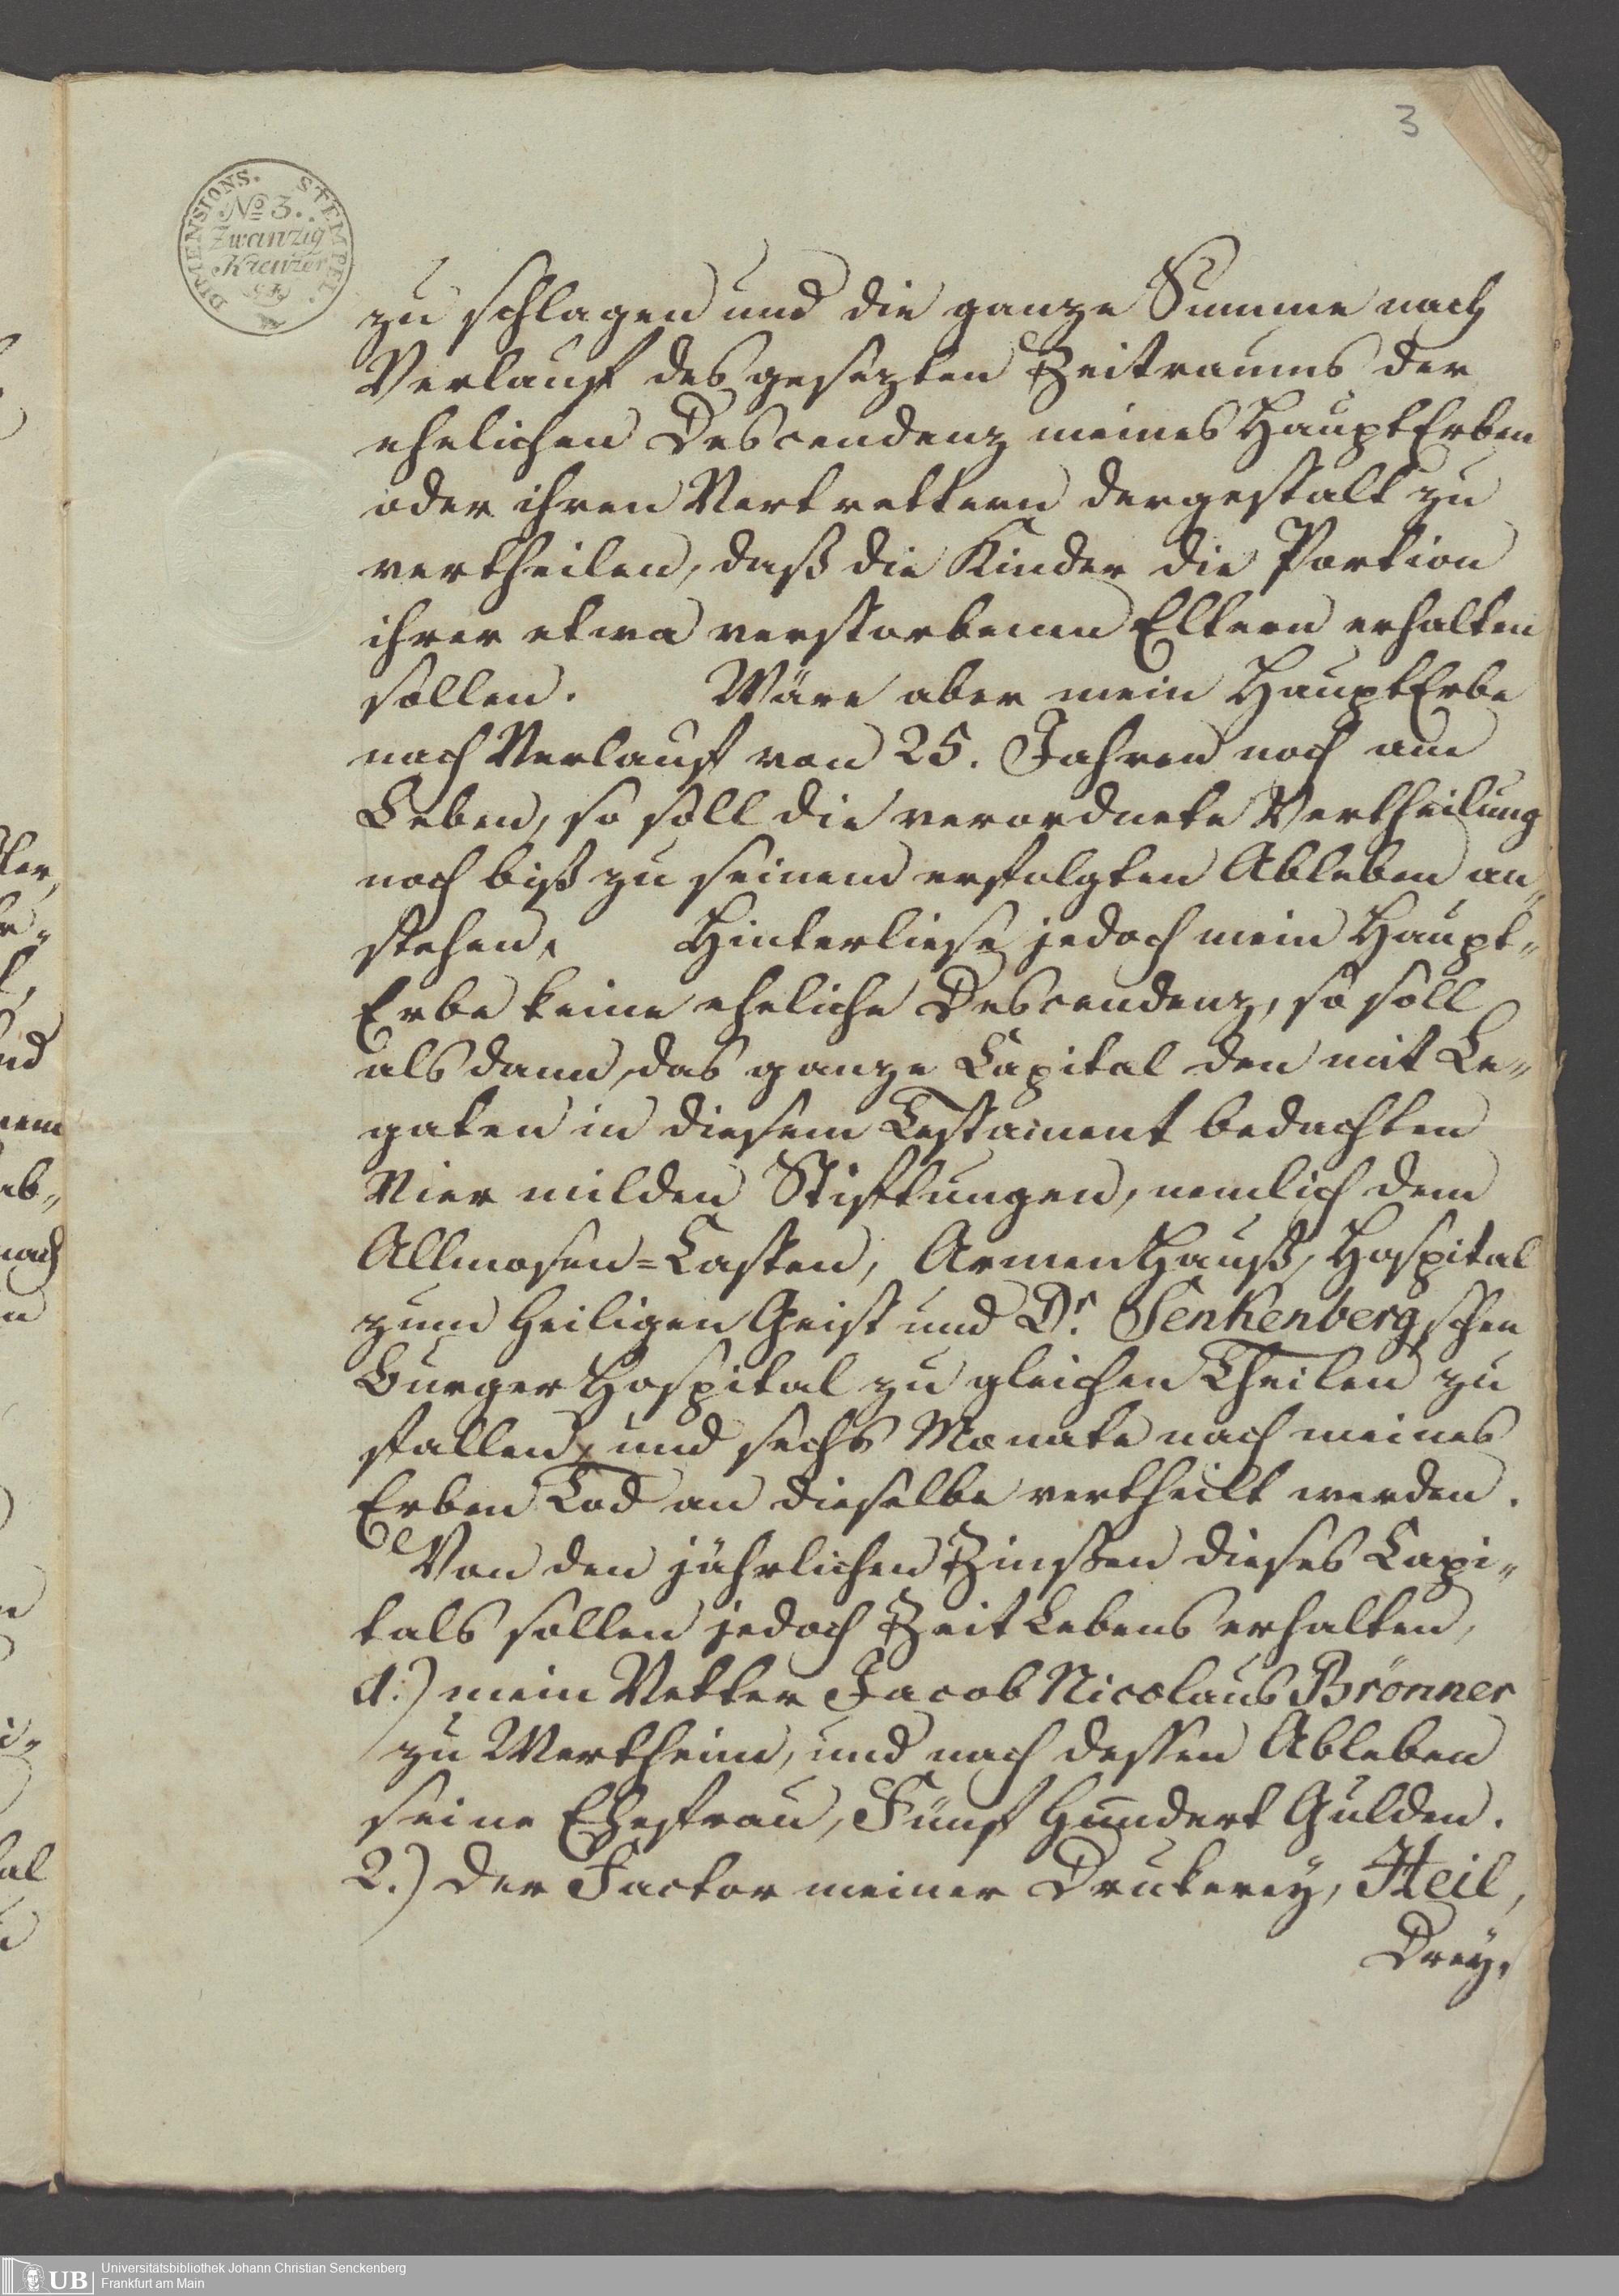 3
DIMENSIONS. STEMPEL.
No 3.
Zwanzig
Kreuzer
zu schlagen und die ganze Summe nach
Verlauf des gesezten Zeitraums der
ehelichen Descendenz meines HauptErben
oder ihren Vertrettern dergestalt zu
vertheilen, daß die Kinder die Portion
ihrer etwa verstorbenen Eltern erhalten
sollen. Wäre aber mein HauptErbe
nach Verlauf von 25. Jahren noch am
Leben, so soll die verordnete Vertheilung
noch biß zu seinem erfolgten Ableben an„
stehen. Hinterliese jedoch mein Haupt„
Erbe keine eheliche Descendenz, so soll
alsdann das ganze Capital den mit Le„
gaten in diesem Testament bedachten
Vier milden Stiftungen, nemlich dem
Allmosen=Casten, ArmenHauß, Hospital
zum Heiligen Geist und Dr. Senkenbergschen
Burger Hospital zu gleichen Theilen zu
fallen, und sechs Monate nach meines
Erben Tod an dieselbe vertheilt werden.
Von den jährlichen Zinßen dieses Capi„
tals sollen jedoch Zeit Lebens erhalten,
1.) mein Vetter Jacob Nicolaus Brönner
zu Wertheim, und nach dessen Ableben
seine Ehefrau, Fünf Hundert Gulden.
2.) der Factor meiner Drukerey, Heil,
Drey,
UB
Universitätsbibliothek Johann Christian Senckenberg
Frankfurt am Main